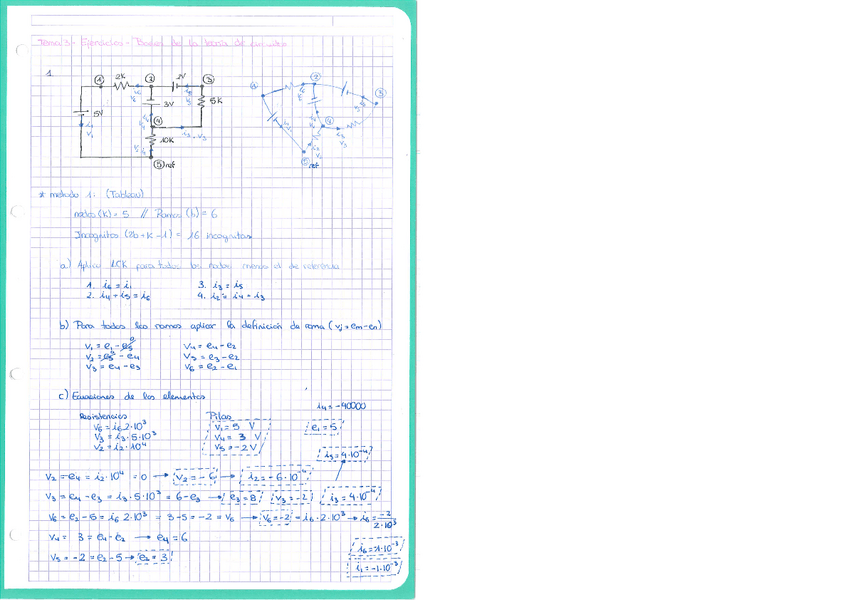 Tema 3 - Ejercicios - Bases de la teoría de circuitos
1.
1 2K 2 2V 3
5V 3V 5K
4
10K
5 ref
* método 1. (Tableau)
nodos (k) = 5 // Ramas (b) = 6
Incógnitas (2b+k-1) = 16 incognitas
a) Aplicar LCK para todos los nodos menos el de referencia
1. i6 = i1 3. i3 = i5
2. i4 + i5 = i6 4. i2 = i4 + i3
b) Para todas las ramas aplicar la definición de rama (vj = em-en)
V1 = e1 - e5 V4 = e4 - e2
V2 = e5 - e4 V5 = e3 - e2
V3 = e4 - e3 V6 = e2 - e1
c) Ecuaciones de los elementos
i4 = -40000
Resistencias Pilas
V6 = i6 2·10³ V1 = 5 V e1 = 5
V3 = i3·5·10³ V4 = 3 V
V2 = i2·10⁴ V5 = -2 V
i5 = 4·10⁻⁴
V2 = -e4 = i2·10⁴ = 0 → V2 = -6 → i2 = -6·10⁻⁴
V3 = e4 - e3 = i3·5·10³ = 6 - e3 → e3 = 8 V3 = -2 i3 = 4·10⁻⁴
V6 = e2 - 5 = i6 2·10³ = 3-5 = -2 = V6 → V6 = -2 = i6·2·10³ → i6 = -2/2·10³
V4 = 3 = e4 - e2 → e4 = 6
V5 = -2 = e2 - 5 → e2 = 3
i6 = -1·10⁻³
i1 = -1·10⁻³